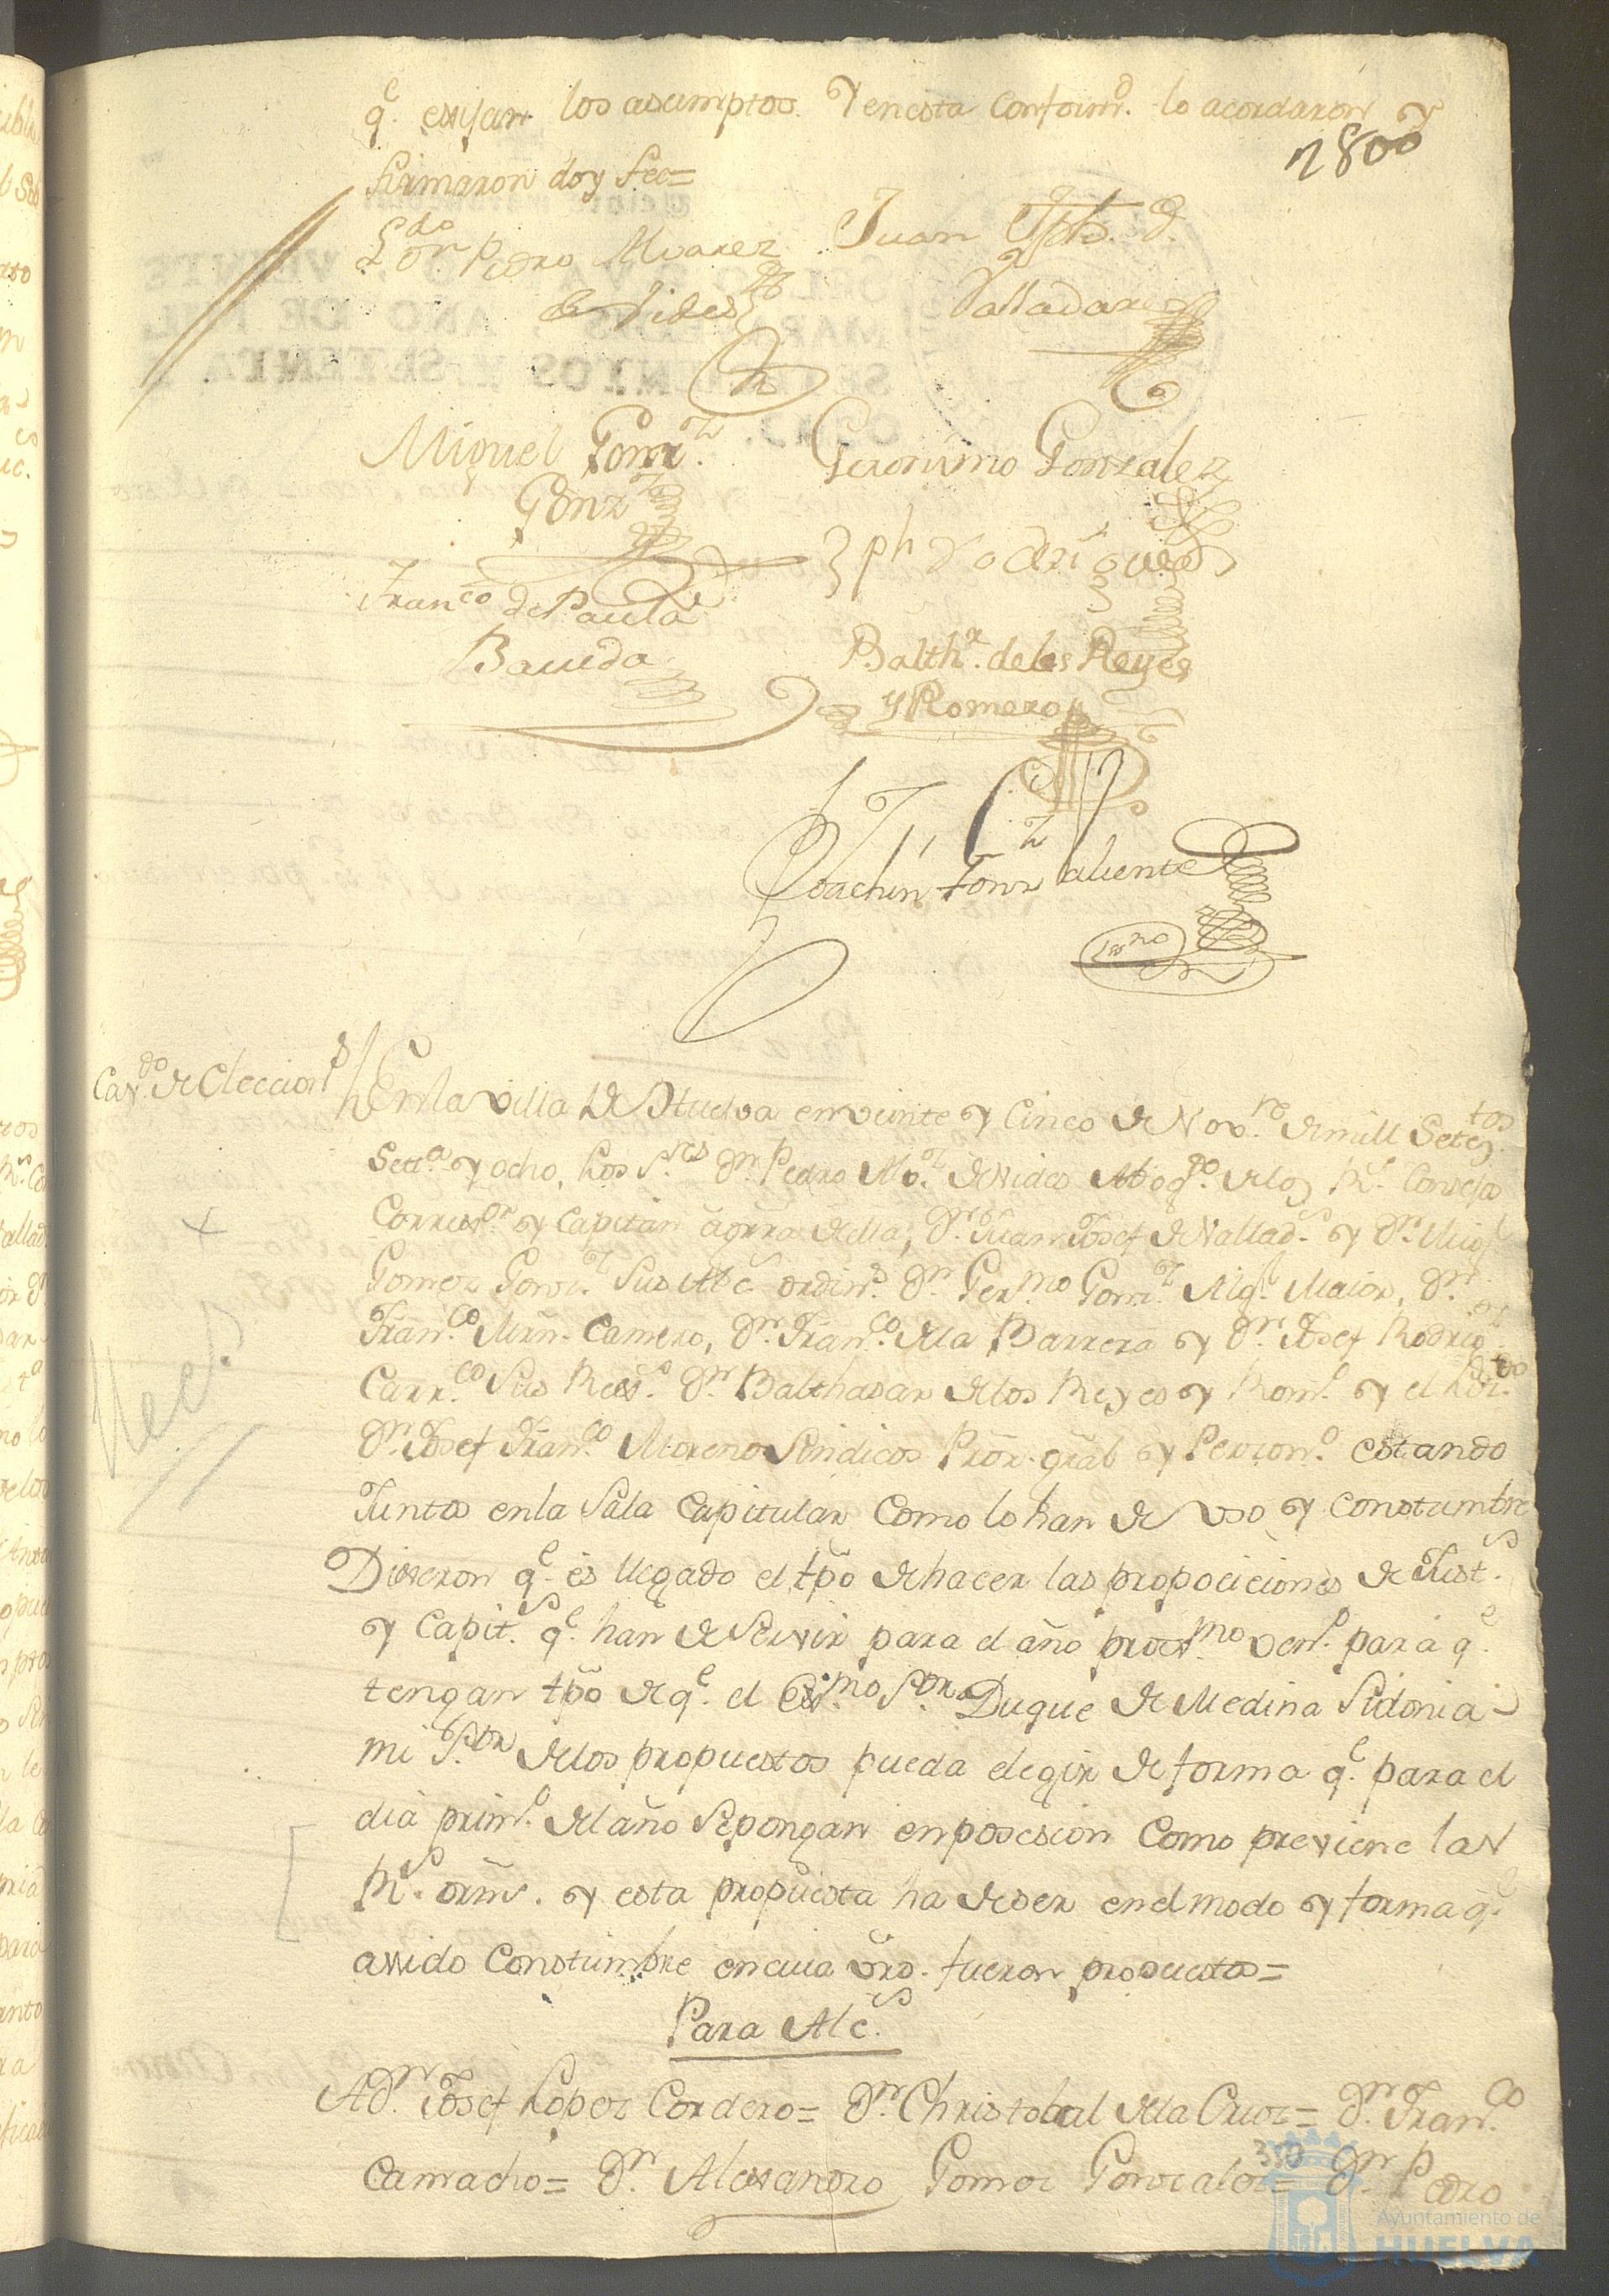 q.e exijan los asumptos. Y en esta conform.d lo acordaron y
firmaron doy fee=
2800
L.do D.n Pedro Alvarez
de Vides
Juan Jph. d.
Valladares
Miguel Gom.z
Gonz.z
Geronimo Gonzalez
Jph Rodriguez
Fran.co de Paula
Balth.r de los Reyes
y Romero
Joachin Gonz.z Valiente
ess.no
Cav.do de Eleccion.s
En la villa de Huelva en veinte y Cinco de Nov.re de mill Setez.tos
Sett.a y ocho, los S.res D.n Pedro Alv.z de Vides Abog.do de los R.s Consejos
Correx.or y Capitan a grra de ella, D.n Juan Josef de Vallad.s y D.n Mig.l
Gomez Gonz.z Sus Alc.s ordin.s D.n Ger.mo Gonz.z Alg.l Maior, D.n
Fran.co Mrn. Camero, D.n Fran.co de la Barrera y D.n Josef Rodrig.z
Carr.co Sus Rex.s D.n Balthasar de los Reyes y Rom.o y el Liz.do
D.n Josef Fran.co Moreno Sindicos Pror. gral y Person.o estando
Juntos en la Sala Capitular Como lo han de uso y Constumbre
Dixeron q.e es llegado el tpo de hacer las propociciones de Just.s
y Capit.s q.e han de Servir para el año prox.mo ven.o para q.e
tengan tpo de q.e el Ex.mo S.or Duque de Medina Sidonia
mi S.or de los propuestos pueda elegir de forma q.e para el
dia prim.o del año Se pongan en posesion Como previene las
R.s orns. y esta propuesta ha de ser en el modo y forma q.e
a sido Constumbre en cuia vrd. fueron propuestos=
Para Alc.s
A D.n Josef Lopez Cordero= D.n Christobal de la Cruz= D.n Fran.co
Camacho= D.n Alexandro Gomez Gonzalez= D.n Pedro
350
Ayuntamiento de
HUELVA